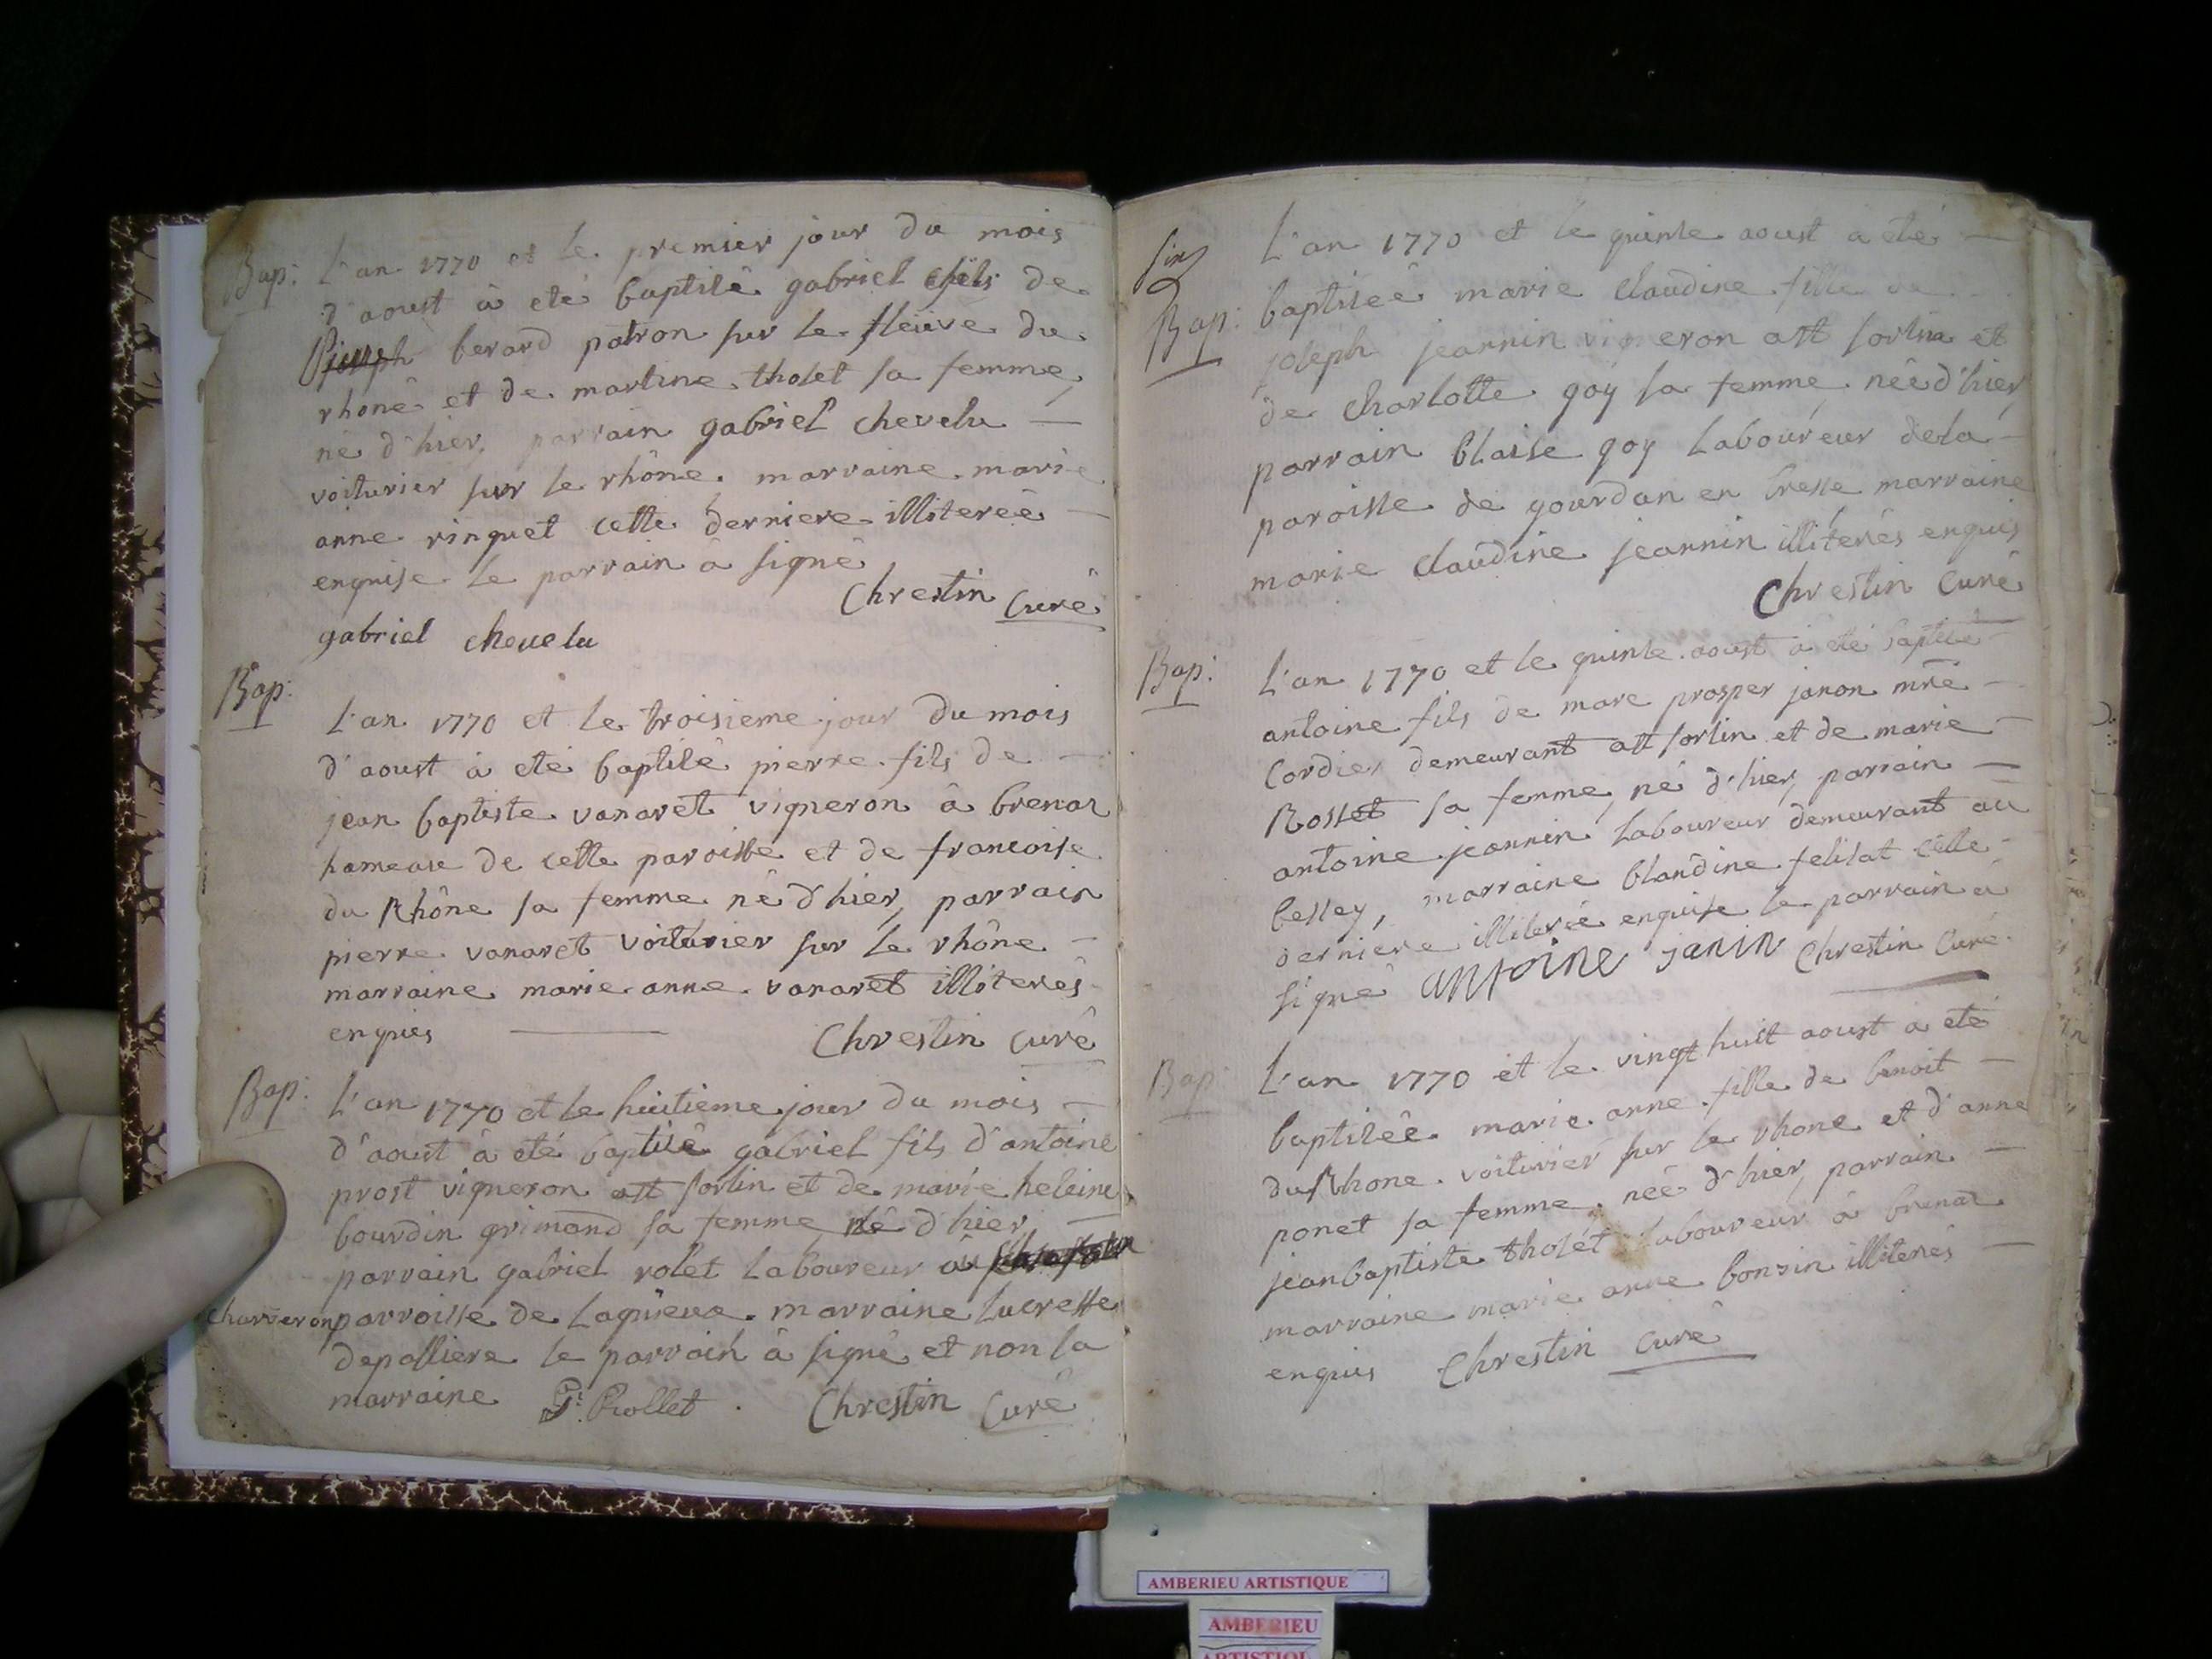 Bap: L'an 1770 et le premier jour du mois
d'aoust à eté baptisé gabriel fils de
berard patron sur le fleuve du
rhône et de martine tholet sa femme,
né d'hier, parrain gabriel chevelu —
voiturier sur le rhône. marraine marie
anne ringuet cette derniere illiterée —
enquise le parrain a signé
Chrestin curé
gabriel cheuelu
Bap:
L'an 1770 et le troisieme jour du mois
d'aoust à eté baptisé pierre fils de —
jean baptiste vanaret vigneron à brenaz
hameau de cette paroisse et de francoise
du Rhône sa femme né d'hier, parrain
pierre vanaret voiturier sur le rhône —
marraine marie anne vanaret illiterés
enquis — Chrestin curé
Bap: L'an 1770 et le huitieme jour du mois —
d'aoust à eté baptisé gabriel fils d'antoine
prost vigneron att sorlin et de marie heleine
bourdin grimand sa femme, né d'hier, —
parrain gabriel rolet Laboureur à
charveron parroisse de Lagnieux. marraine Lucresse
depalliere le parrain à signé et non la
marraine G: Rollet . Chrestin curé
L'an 1770 et le quinze aoust a eté —
Bap: baptiseé marie claudine fille de
joseph jeannin vigneron att sorlin et
de charlotte goy sa femme née d'hier,
parrain blaise goy Laboureur dela —
paroisse de gourdan en bresse marraine
marie claudine jeannin illiterés enquis
Chrestin curé
Bap: L'an 1770 et le quinze aoust à eté baptisé
antoine fils de marc prosper janon mtre —
cordier demeurant att sorlin et de marie —
Rosset sa femme, né d'hier, parrain —
antoine jeannin Laboureur demeurant au
bessey, marraine blandine felisat cette —
derniere illiterée enquise le parrain a
signé antoine janin Chrestin curé
Bap: L'an 1770 et le vingt huit aoust a eté
baptisée marie anne fille de benoit —
du Rhone voiturier sur le rhone et d'anne
ponet sa femme, née d'hier, parrain —
jean baptiste tholet laboureur à brenaz
marraine marie anne bonzin illiterés —
enquis Chrestin curé
AMBERIEU ARTISTIQUE
AMBERIEU
ARTISTIQUE